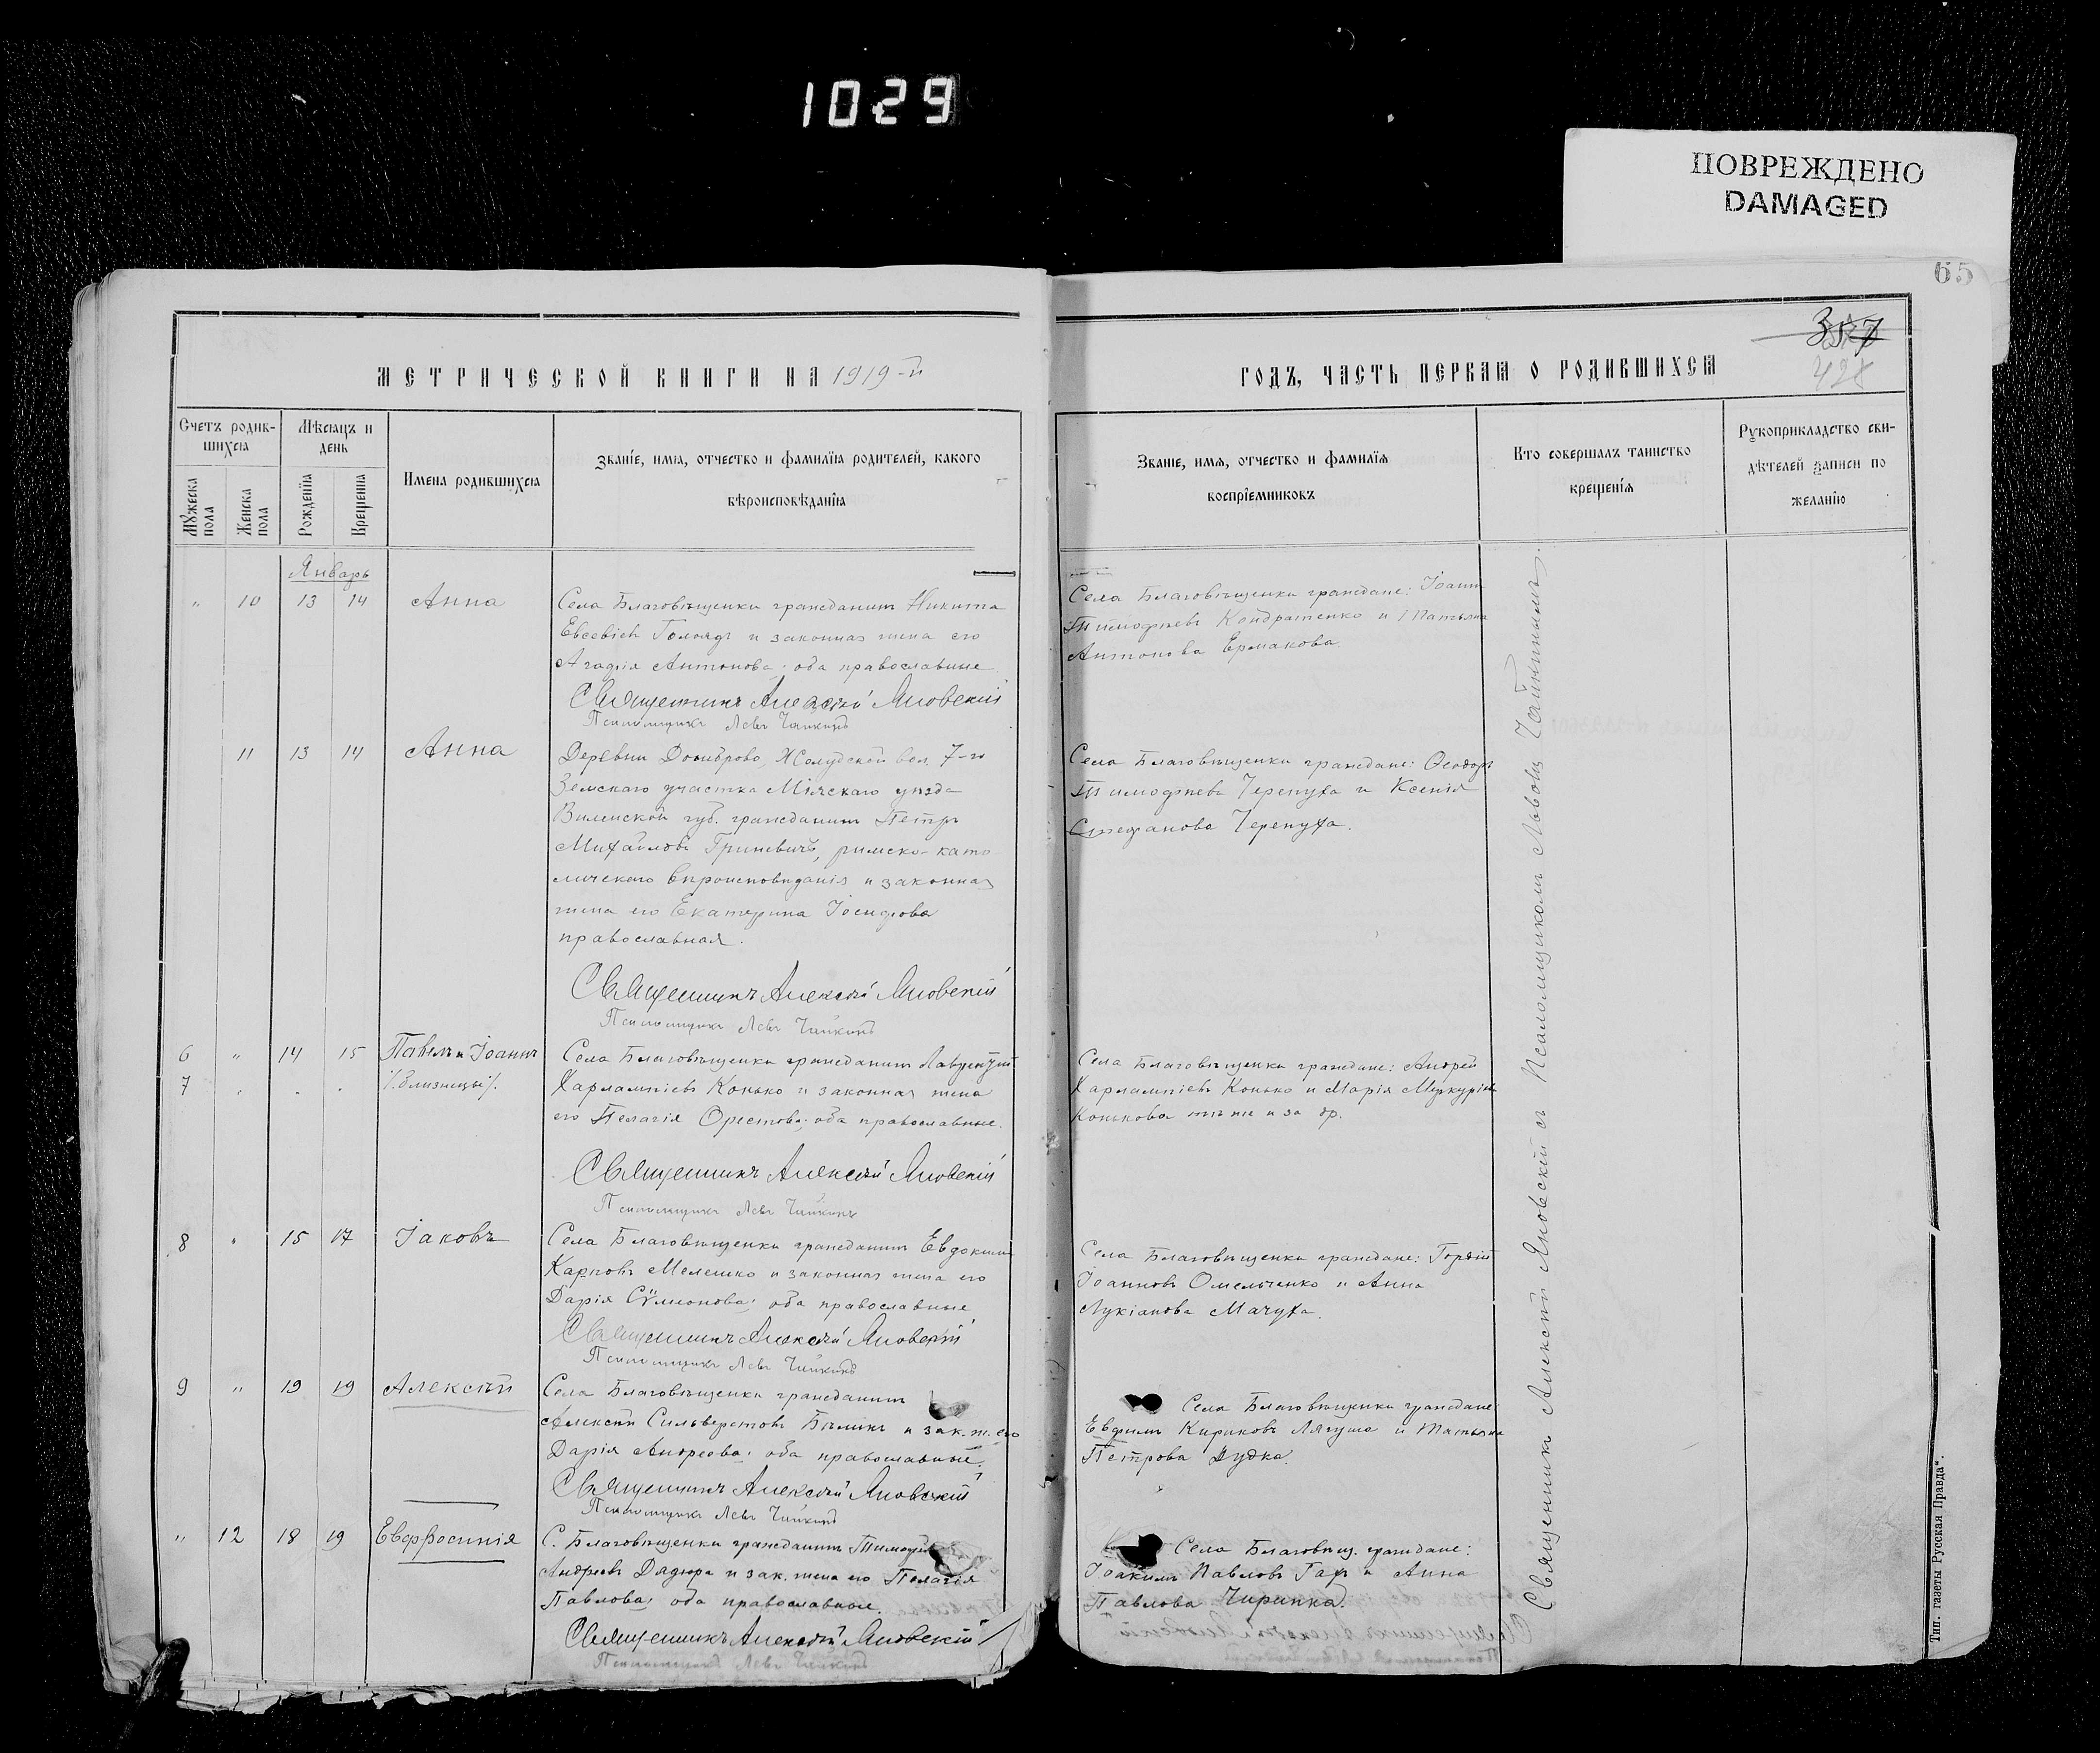 1029
ПОВРЕЖДЕНО
DAMAGED
65
357
428
МЕТРИЧЕСКОЙ КНИГИ НА 1919-й
ГОДЪ, ЧАСТЬ ПЕРВАѦ О РОДИВШИХСѦ
Счетъ родив-
шихсѧ
Мѣсѧцъ и
день
Мужеска
пола
Женска
пола
Рожденїѧ
Крещенїѧ
Имена родившихсѧ
Званїе, имѧ, отчество и фамилїѧ родителей, какого
вѣроисповѣданїѧ
Званїе, имѧ, отчество и фамилїѧ
воспрїемниковъ
Кто совершалъ таинство
крещенїѧ
Рукоприкладство сви-
дѣтелей записи по
желанїю
Январь
" 10 13 14 Анна
Села Благовѣщенки гражданинъ Никита
Евсевіевъ Голоядъ и законная жена его
Агафія Антонова; оба православные
Священникъ Алексѣй Яновскій
Псаломщикъ Левъ Чайкинъ
Села Благовѣщенки граждане: Іоаннъ
Тимофѣевъ Кондратенко и Татьяна
Антонова Ермакова.
11 13 14 Анна
Деревни Домброво, Желудской вол. 7-го
Земскаго участка уѣзда
Виленской губ. гражданинъ Петръ
Михайловъ Гриневичъ, римско-като
лическаго вѣроисповѣданія и законная
жена его Екатерина Іосифова
православная.
Священникъ Алексѣй Яновскій
Псаломщикъ Левъ Чайкинъ
Села Благовѣщенки граждане: Ѳеодоръ
Тимофѣевъ Черепуха и Ксенія
Стефанова Черепуха.
6 " 14 15 Павелъ и Іоаннъ
7 " . . /. близнецы /.
Села Благовѣщенки гражданинъ Лаврентій
Харлампіевъ Конько и законная жена
его Пелагія Орестова; оба православные.
Священникъ Алексѣй Яновскій
Псаломщикъ Левъ Чайкинъ
Села Благовѣщенки граждане: Андрей
Харлампіевъ Конько и Марія Меркуріева
Конькова тѣ же и за др.
8 " 15 17 Іаковъ
Села Благовѣщенки гражданинъ Евдокимъ
Карповъ Мелешко и законная жена его
Дарія Сѵмеонова; оба православные
Священникъ Алексѣй Яновскій
Псаломщикъ Левъ Чайкинъ
Села Благовѣщенки граждане: Гордій
Іоанновъ Омельченко и Анна
Лукіанова Мачуха.
9 " 19 19 Алексѣй
Села Благовѣщенки гражданинъ
Алексѣй Сильверстовъ Бѣликъ и зак. ж. его
Дарія Андреева; оба православные.
Священникъ Алексѣй Яновскій
Псаломщикъ Левъ Чайкинъ
Села Благовѣщенки граждане:
Евфимъ Кириковъ Лягуша и Татьяна
Петрова Дудка.
" 12 18 19 Евфросинія
С. Благовѣщенки гражданинъ Тимофей
Андреевъ Дядюра и зак. жена его Пелагія
Павлова; оба православные.
Священникъ Алексѣй Яновскій
Псаломщикъ Левъ Чайкинъ
Села Благовѣщ. граждане:
Іоакимъ Павловъ Гар и Анна
Павлова Чирикка.
Священникъ Алексѣй Яновскій съ Псаломщикомъ Львомъ Чайкинымъ.
Тип. газеты „Русская Правда“.